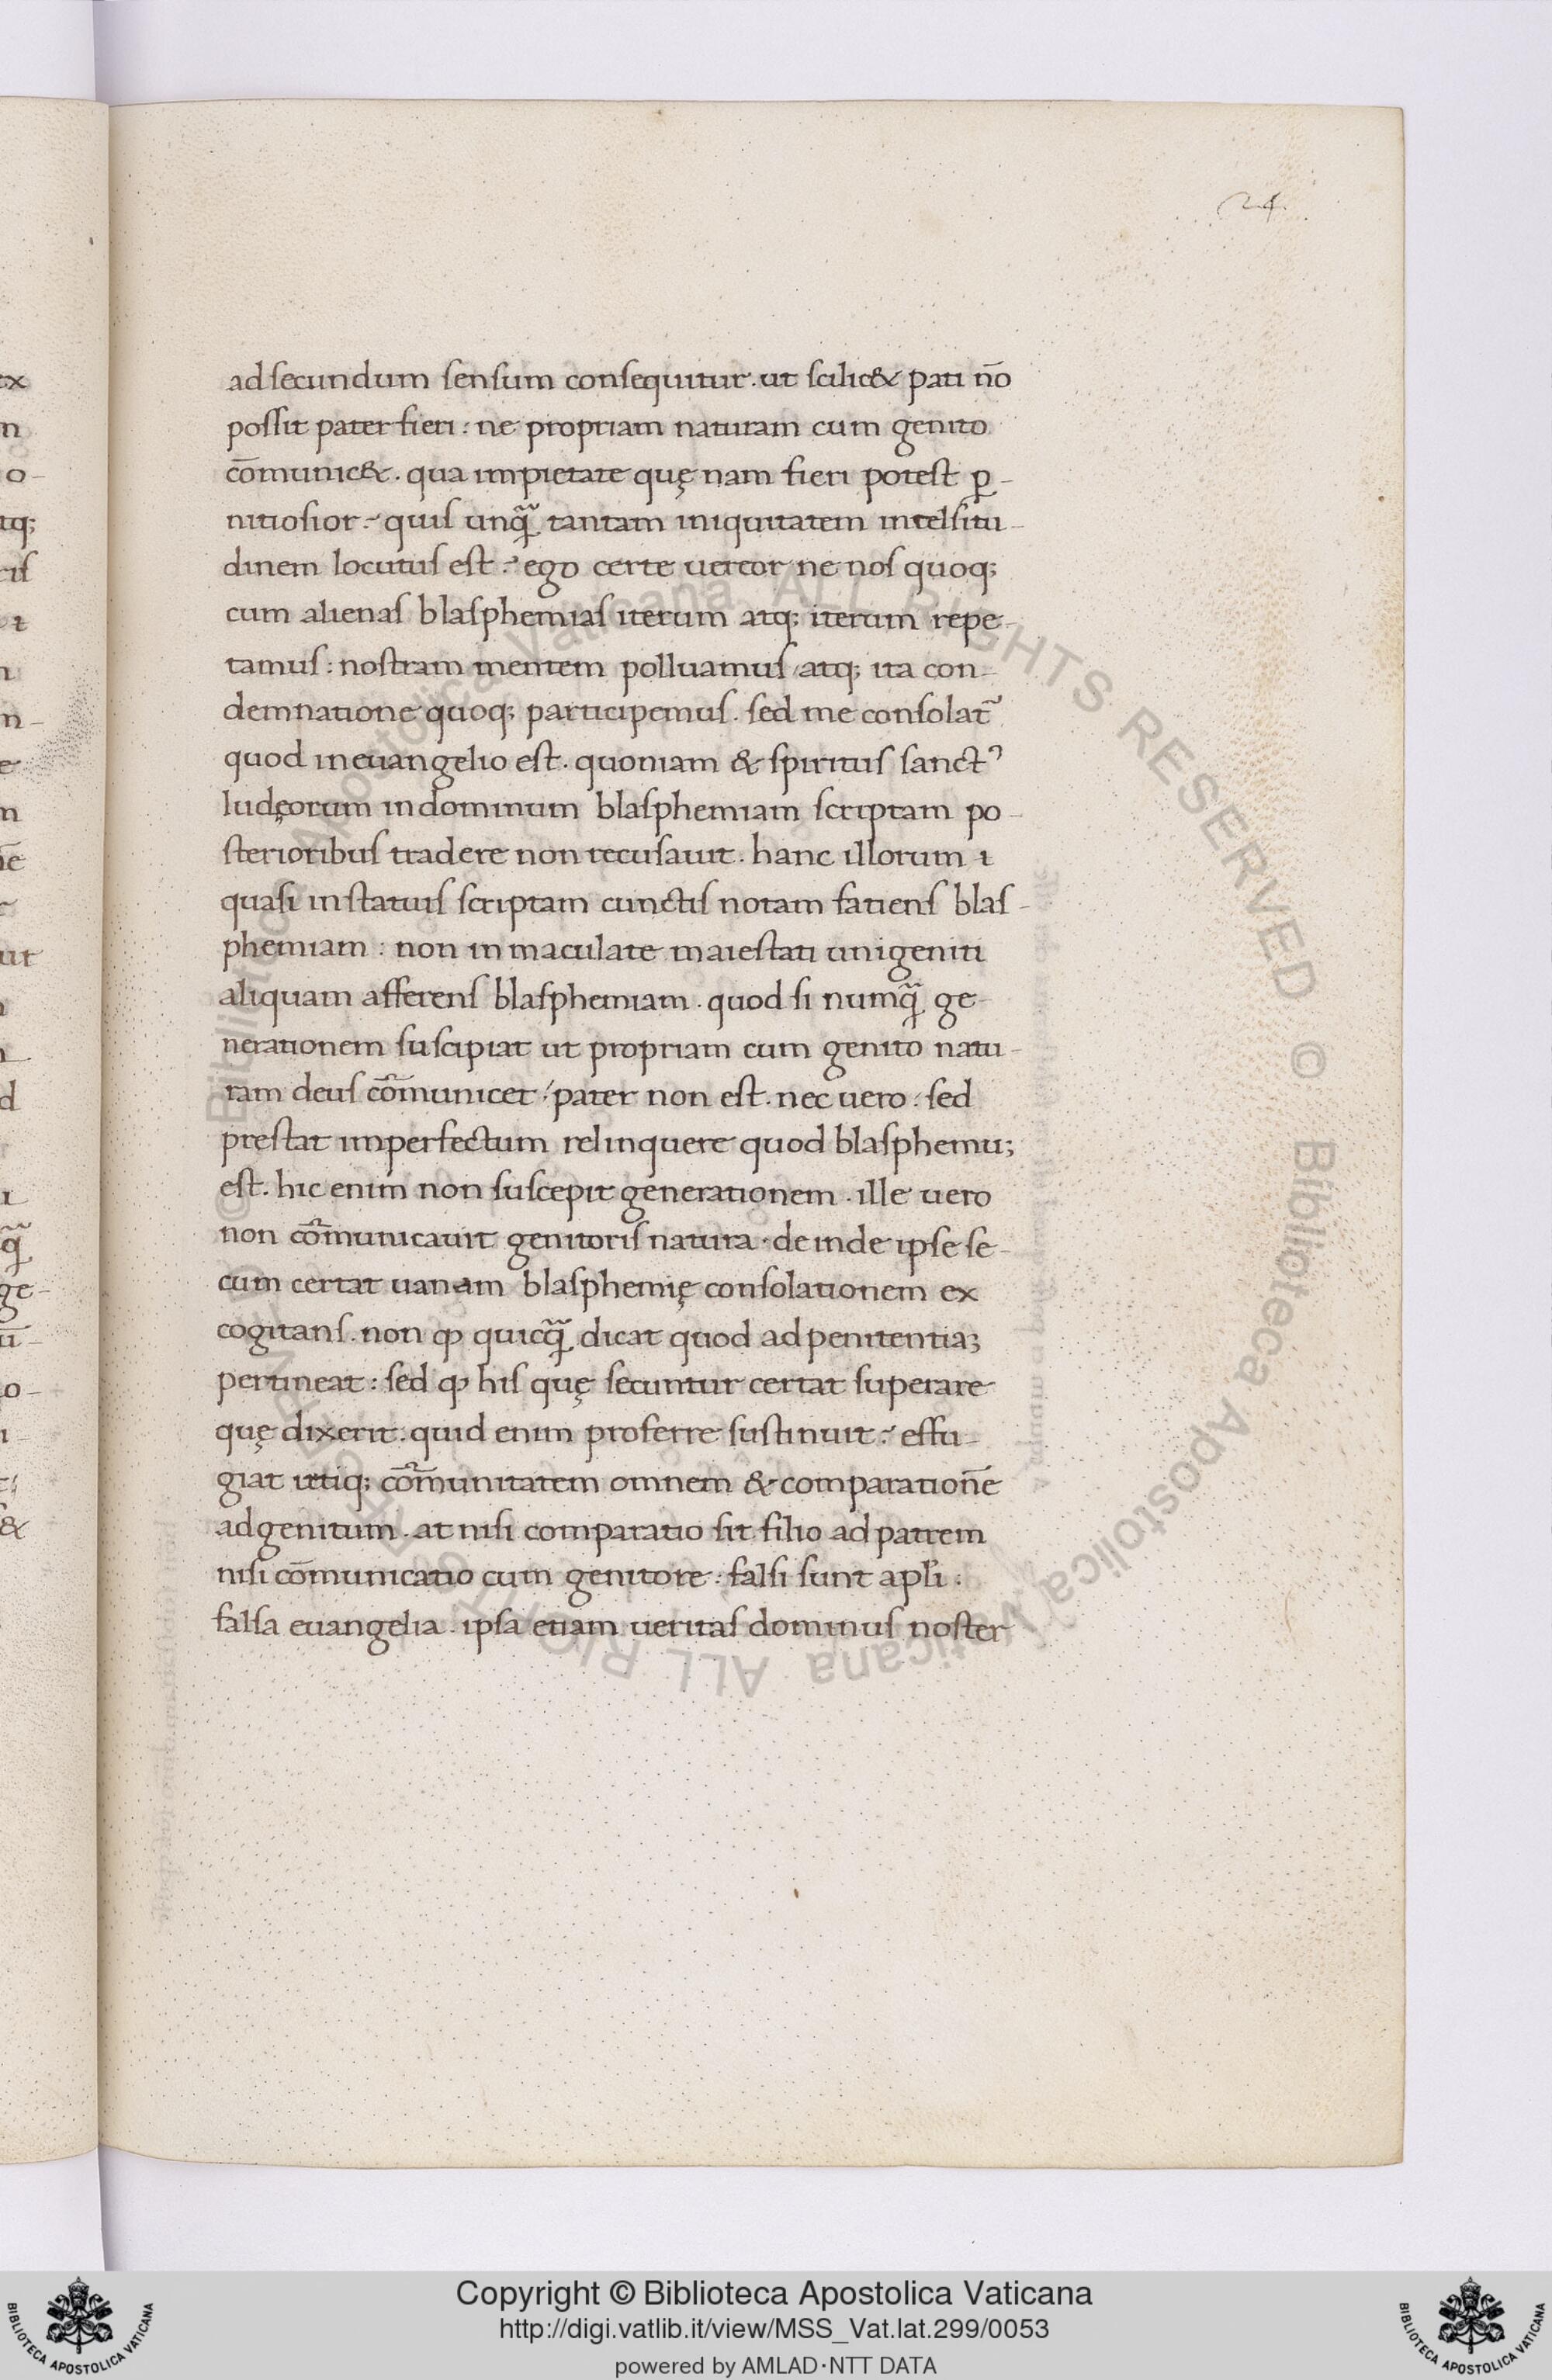 24.
ad secundum sensum consequitur. ut scilic& pati nō
possit pater fieri: ne propriam naturam cum genito
cōmunic&. qua impietate quę nam fieri potest ꝑ-
nitiosior? quis unq̃ tantam iniquitatem intelsitu-
dinem locutus est? ego certe uereor ne nos quoq;
cum alienas blasphemias iterum atq; iterum repe-
tamus: nostram mentem polluamus / atq; ita con-
demnatione quoq; participemus. sed me consolat̃
quod in euangelio est. quoniam & spiritus sanctꝰ
Iudęorum in dominum blasphemiam scriptam po-
sterioribus tradere non recusauit. hanc illorum ı
quasi in statuis scriptam cunctis notam fatiens blas-
phemiam: non inmaculate maiestati unigeniti
aliquam afferens blasphemiam. quod si numq̃ ge-
nerationem suscipiat ut propriam cum genito natu-
ram deus cōmunicet / pater non est. nec uero: sed
prestat imperfectum relinquere quod blasphemu;
est. hic enim non suscepit generationem. ille uero
non cōmunicauit genitoris natura. deinde ipse se-
cum certat uanam blasphemię consolationem ex
cogitans. non ꝙ quicq̃ dicat quod ad penitentia;
pertineat: sed ꝙ his quę secuntur certat superare
quę dixerit: quid enim proferre sustinuit? effu-
giat utiq; cōmunitatem omnem & comparationē
ad genitum. at nisi comparatio sit filio ad patrem
nisi cōmunicatio cum genitore: falsi sunt apl̓i:
falsa euangelia. ipsa etiam ueritas dominus noster
© Biblioteca Apostolica Vaticana ALL RIGHTS RESERVED © Biblioteca Apostolica Vaticana ALL RIGHTS RESERVED
Copyright © Biblioteca Apostolica Vaticana
http://digi.vatlib.it/view/MSS_Vat.lat.299/0053
powered by AMLAD·NTT DATA
BIBLIOTECA APOSTOLICA VATICANA
BIBLIOTECA APOSTOLICA VATICANA